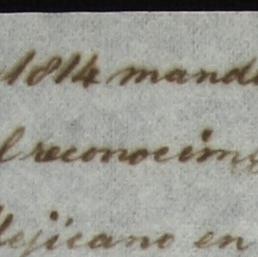 1814 mand
l reconocim
ejicano en